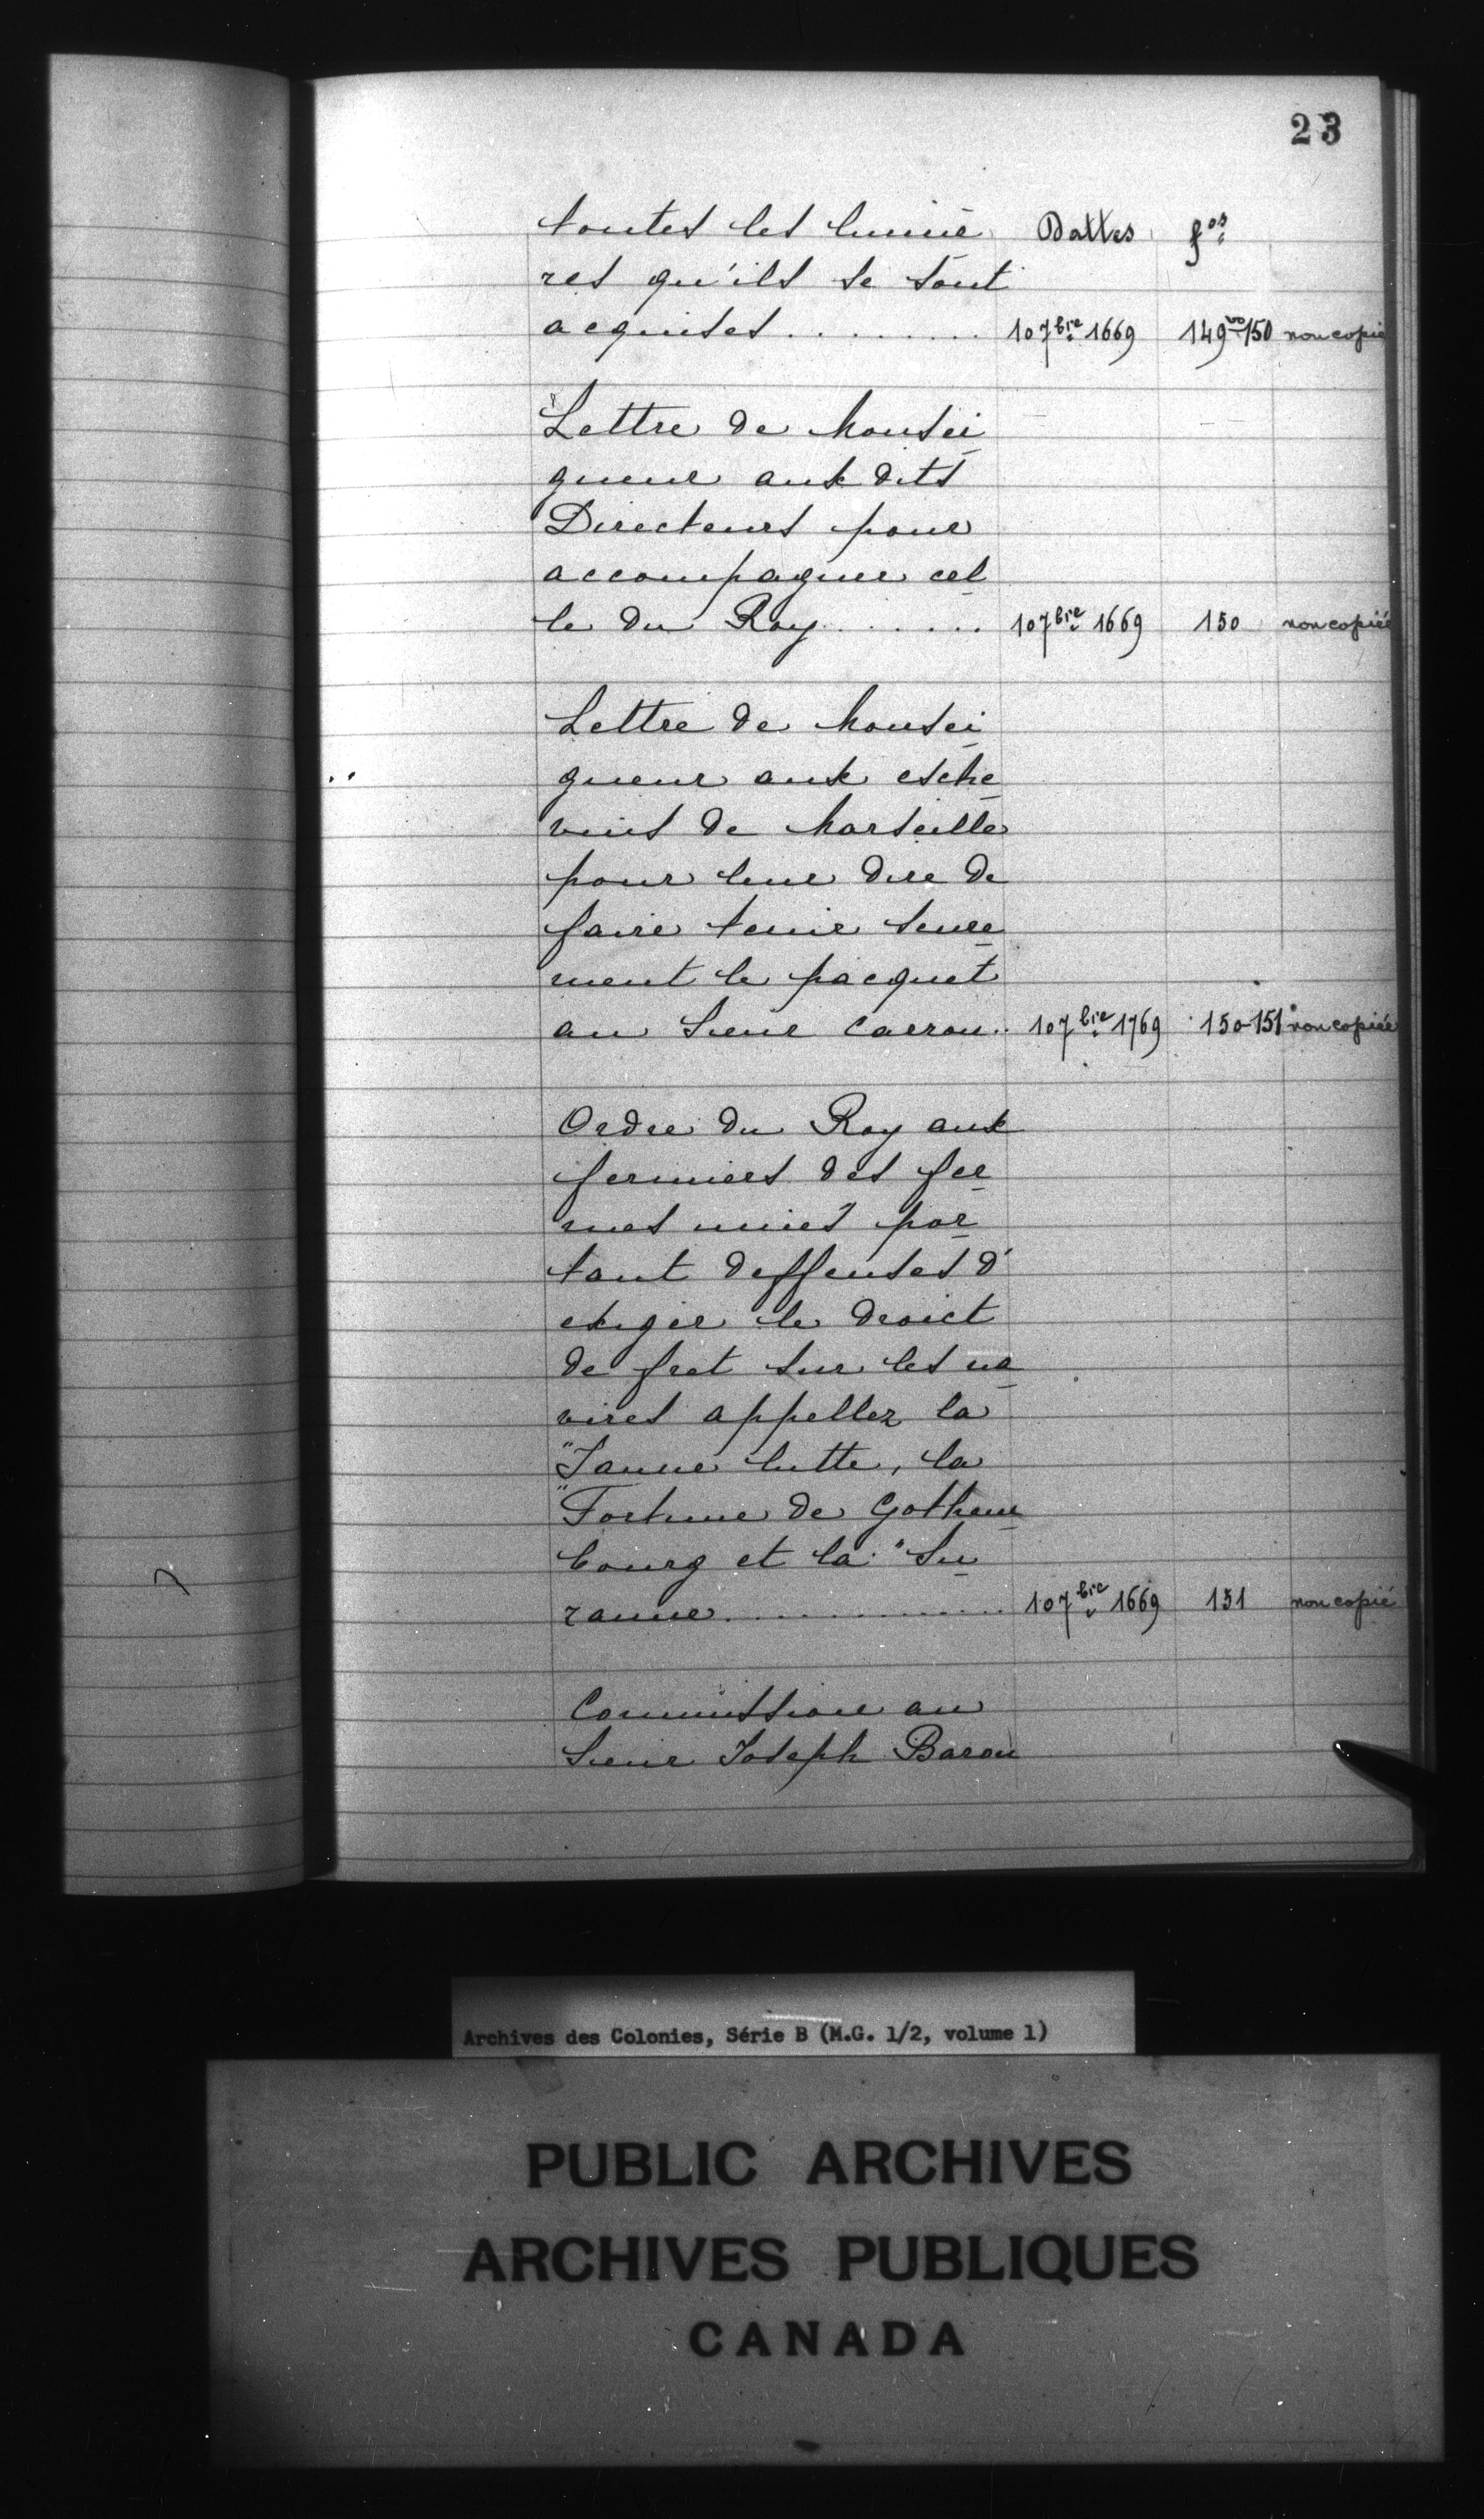 23
toutes les lumiè Dattes fos
res qu'ils se sont
acquises......... 10 7bre 1669 149vo-150 non copié
Lettre de Monsei
gneur aux dits
Directeurs pour
accompagner cel
le du Roy....... 10 7bre 1669 150 non copiée
Lettre de Monsei
gneur aux esche
vins de Marseille
pour leur dire de
faire tenir seure
ment le pacquet
au Sieur Carron.. 10 7bre 1769 150-151 non copiée
Ordre du Roy aux
fermiers des fer
mes unies por
tant deffenses d'
exiger le droict
de fret sur les na
vires appellez la
"Janne lutte, la
"Fortune de Gothem
bourg et la "Su
zanne............ 10 7bre 1669 151 non copié
Commission au
Sieur Joseph Baron
Archives des Colonies, Série B (M.G. 1/2, volume 1)
PUBLIC ARCHIVES
ARCHIVES PUBLIQUES
CANADA